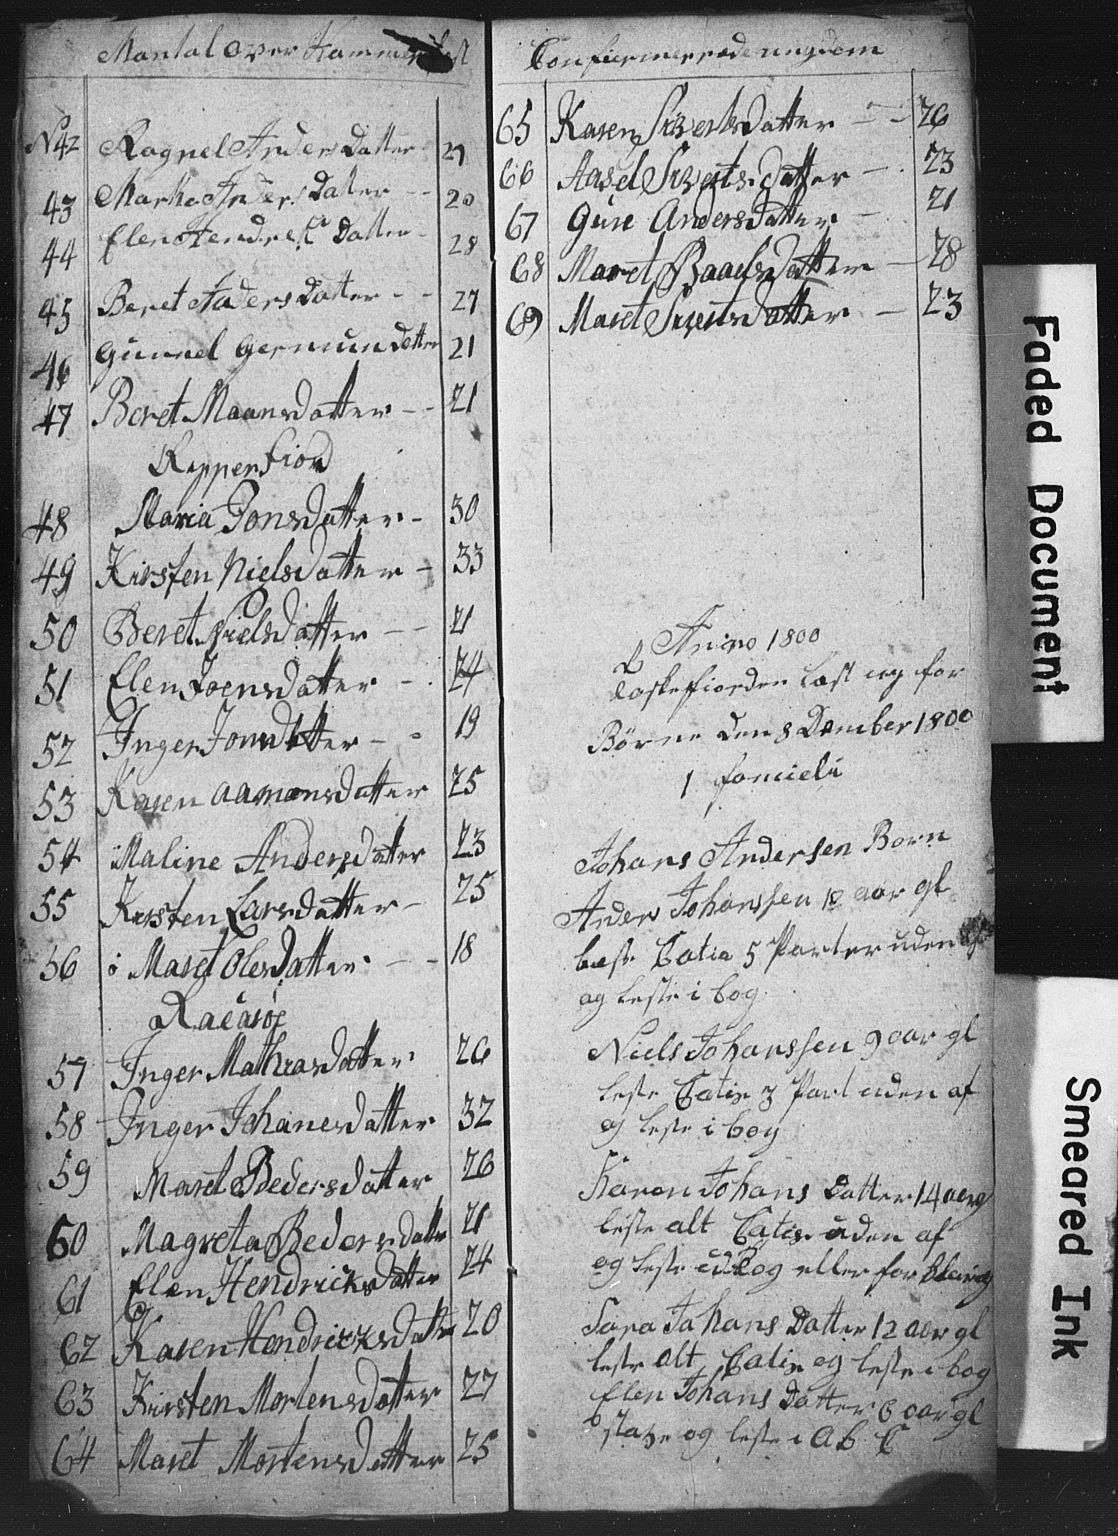 Mantal over Hammerfest
N 42 Ragnel Anders Datter 27
43 Marka Anders Datter -- 20
44 Elen Hendrics Datter - 28
45 Beret Anders Datter -- 27
46 Gunnel Germundatter 21
47 Beret Maansdatter -- 21
Repperfiord
48 Maria Jonsdatter - 30
49 Kirsten Nielsdatter - 33
50 Beret Nielsdatter -- 21
51 Elen Joensdatter - 24
52 Inger Jonsdatter - 19
53 Karen Aamonsdatter 25
54 Maline Andersdatter 23
55 Kirsten Larsdatter - 25
56 Maret Olesdatter -- 18
57 Inger Mathiasdatter 26
58 Inger Johanesdatter 32
59 Maret Bedersdatter 26
60 Magreta Bedersdatter 21
61 Elen Hendricksdatter 24
62 Karen Hendricksdatter 20
63 Kirsten Mortensdatter 27
64 Maret Mortensdatter 25
Confiermerrede ungdom
65 Karen Siversdatter -- 26
66 Aasel Sivertsdatter - 23
67 Gure Andersdatter - 21
68 Maret Baaelsdatter - 28
69 Maret Sivertsdatter - 23
Anno 1800
læst ieg for
Børne den 8 Dember 1800
1 famieli
Johans Andersen Børn
Anders Johanssen 12 aar gl
læste Catie 5 Parter uden af
og leste i bog
Niels Johanssen 9 aar gl
leste Catie 3 Part uden af
og leste i bog
Karen Johans Datter 14 aar g
leste alt Catie uden af
og leste i Bog eller for klaring
Sara Johans Datter 12 aar gl
leste alt Catie og leste i bog
Elen Johans Datter 6 aar gl
stave og leste i A b C
Faded Document
Smeared Ink